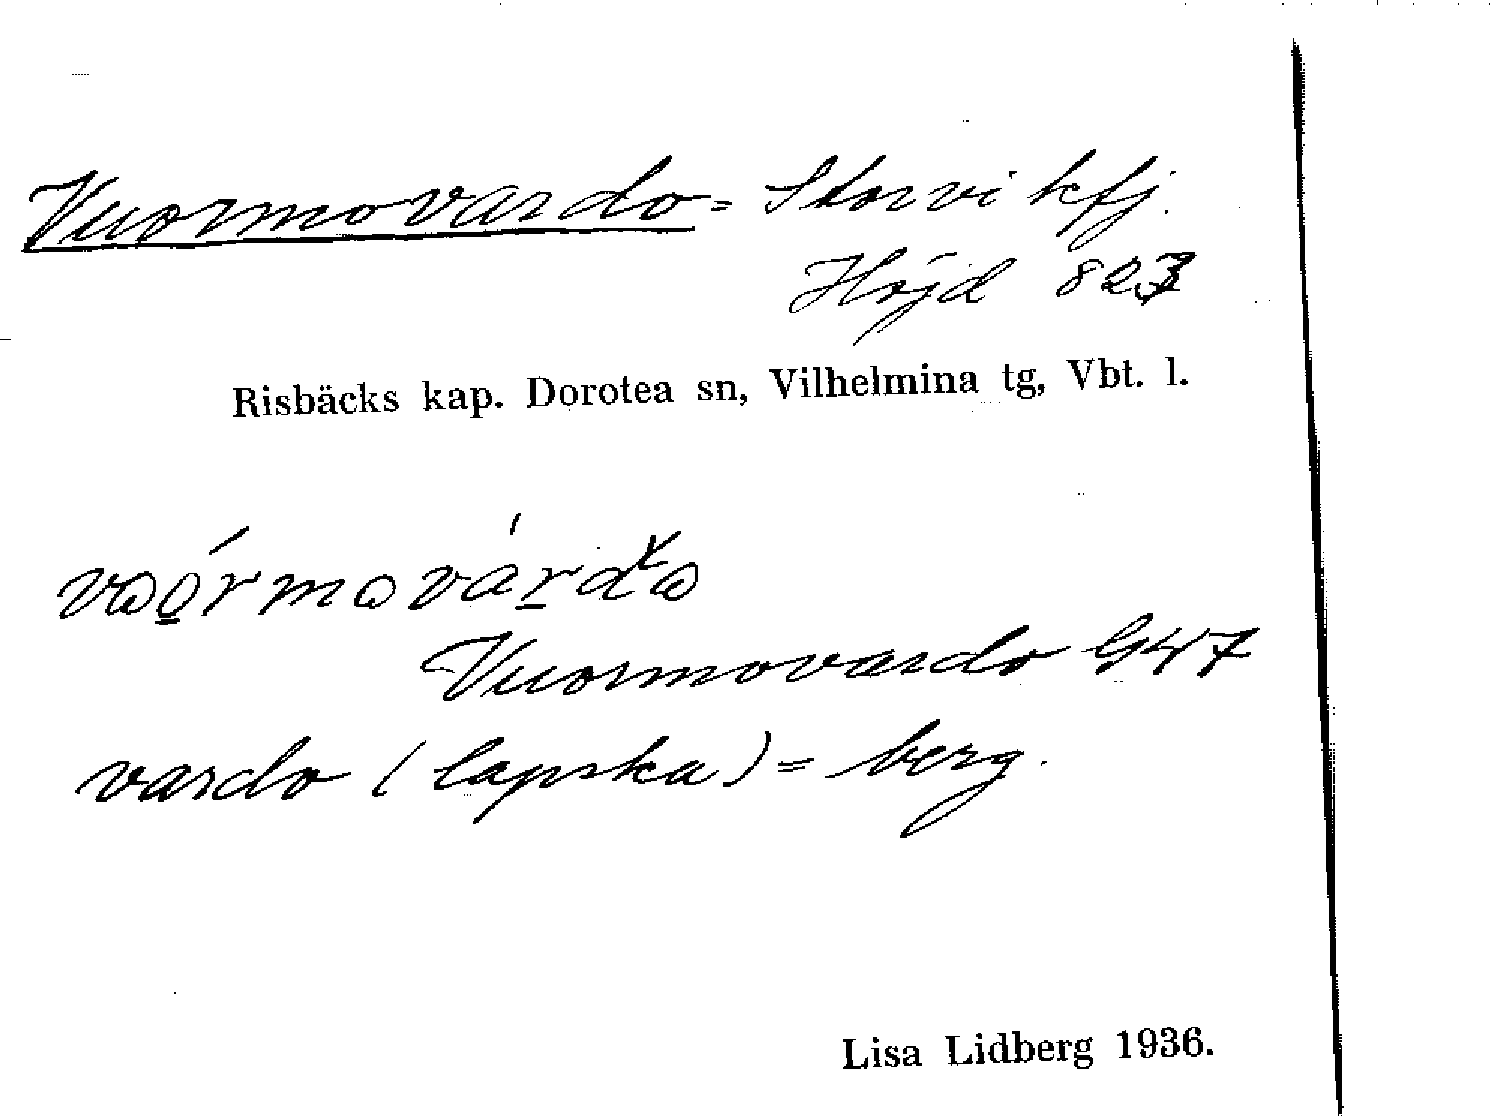 Vuormovardo = Storvikfj.
Höjd 823
Risbäcks kap. Dorotea sn, Vilhelmina tg, Vbt. l.
Vuormovardo G47
vardo (lapska) = berg.
Lisa Lidberg 1936.